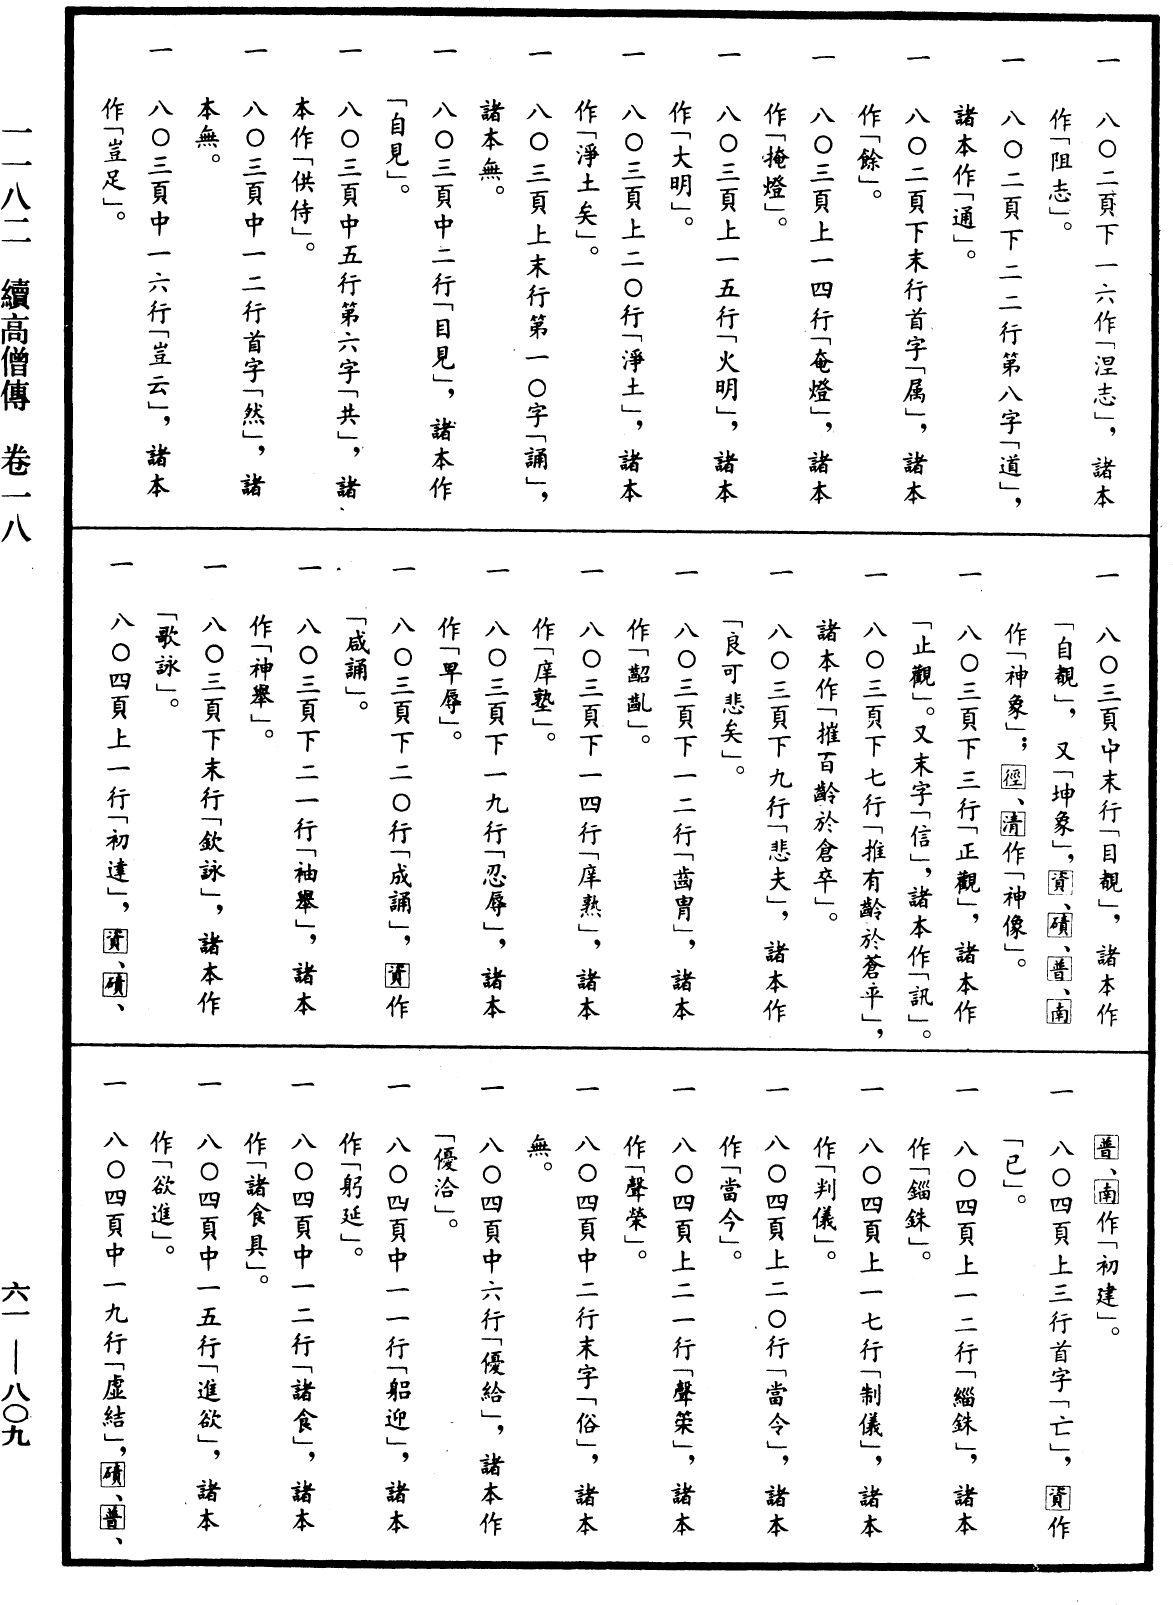 一　八〇二頁下一六作「涅志」，諸本
作「阻志」。
一　八〇二頁下二二行第八字「道」，
諸本作「通」。
一　八〇二頁下末行首字「属」，諸本
作「餘」。
一　八〇三頁上一四行「奄燈」，諸本
作「掩燈」。
一　八〇三頁上一五行「火明」，諸本
作「大明」。
一　八〇三頁上二〇行「淨土」，諸本
作「淨土矣」。
一　八〇三頁上末行第一〇字「誦」，
諸本無。
一　八〇三頁中二行「目見」，諸本作
「自見」。
一　八〇三頁中五行第六字「共」，諸
本作「供侍」。
一　八〇三頁中一二行首字「然」，諸
本無。
一　八〇三頁中一六行「豈云」，諸本
作「豈足」。
一　八〇三頁中末行「目覩」，諸本作
「自覩」，又「坤象」，資、磧、普、南
作「神象」；徑、清作「神像」。
一　八〇三頁下三行「正觀」，諸本作
「止觀」。又末字「信」，諸本作「訊」。
一　八〇三頁下七行「推有齡於蒼平」，
諸本作「摧百齡於倉卒」。
一　八〇三頁下九行「悲夫」，諸本作
「良可悲矣」。
一　八〇三頁下一二行「齒冑」，諸本
作「齠齓」。
一　八〇三頁下一四行「庠熟」，諸本
作「庠塾」。
一　八〇三頁下一九行「忍辱」，諸本
作「早辱」。
一　八〇三頁下二〇行「成誦」，資作
「咸誦」。
一　八〇三頁下二一行「袖舉」，諸本
作「神舉」。
一　八〇三頁下末行「欽詠」，諸本作
「歌詠」。
一　八〇四頁上一行「初達」，資、磧、
普、南作「初建」。
一　八〇四頁上三行首字「亡」，資作
「已」。
一　八〇四頁上一二行「緇銖」，諸本
作「錙銖」。
一　八〇四頁上一七行「制儀」，諸本
作「判儀」。
一　八〇四頁上二〇行「當令」，諸本
作「當今」。
一　八〇四頁上二一行「聲策」，諸本
作「聲榮」。
一　八〇四頁中二行末字「俗」，諸本
無。
一　八〇四頁中六行「優給」，諸本作
「優洽」。
一　八〇四頁中一一行「躬迎」，諸本
作「躬延」。
一　八〇四頁中一二行「諸食」，諸本
作「諸食具」。
一　八〇四頁中一五行「進欲」，諸本
作「欲進」。
一　八〇四頁中一九行「虛結」，磧、普、
一一八二　續高僧傳　卷一八
六一——八〇九